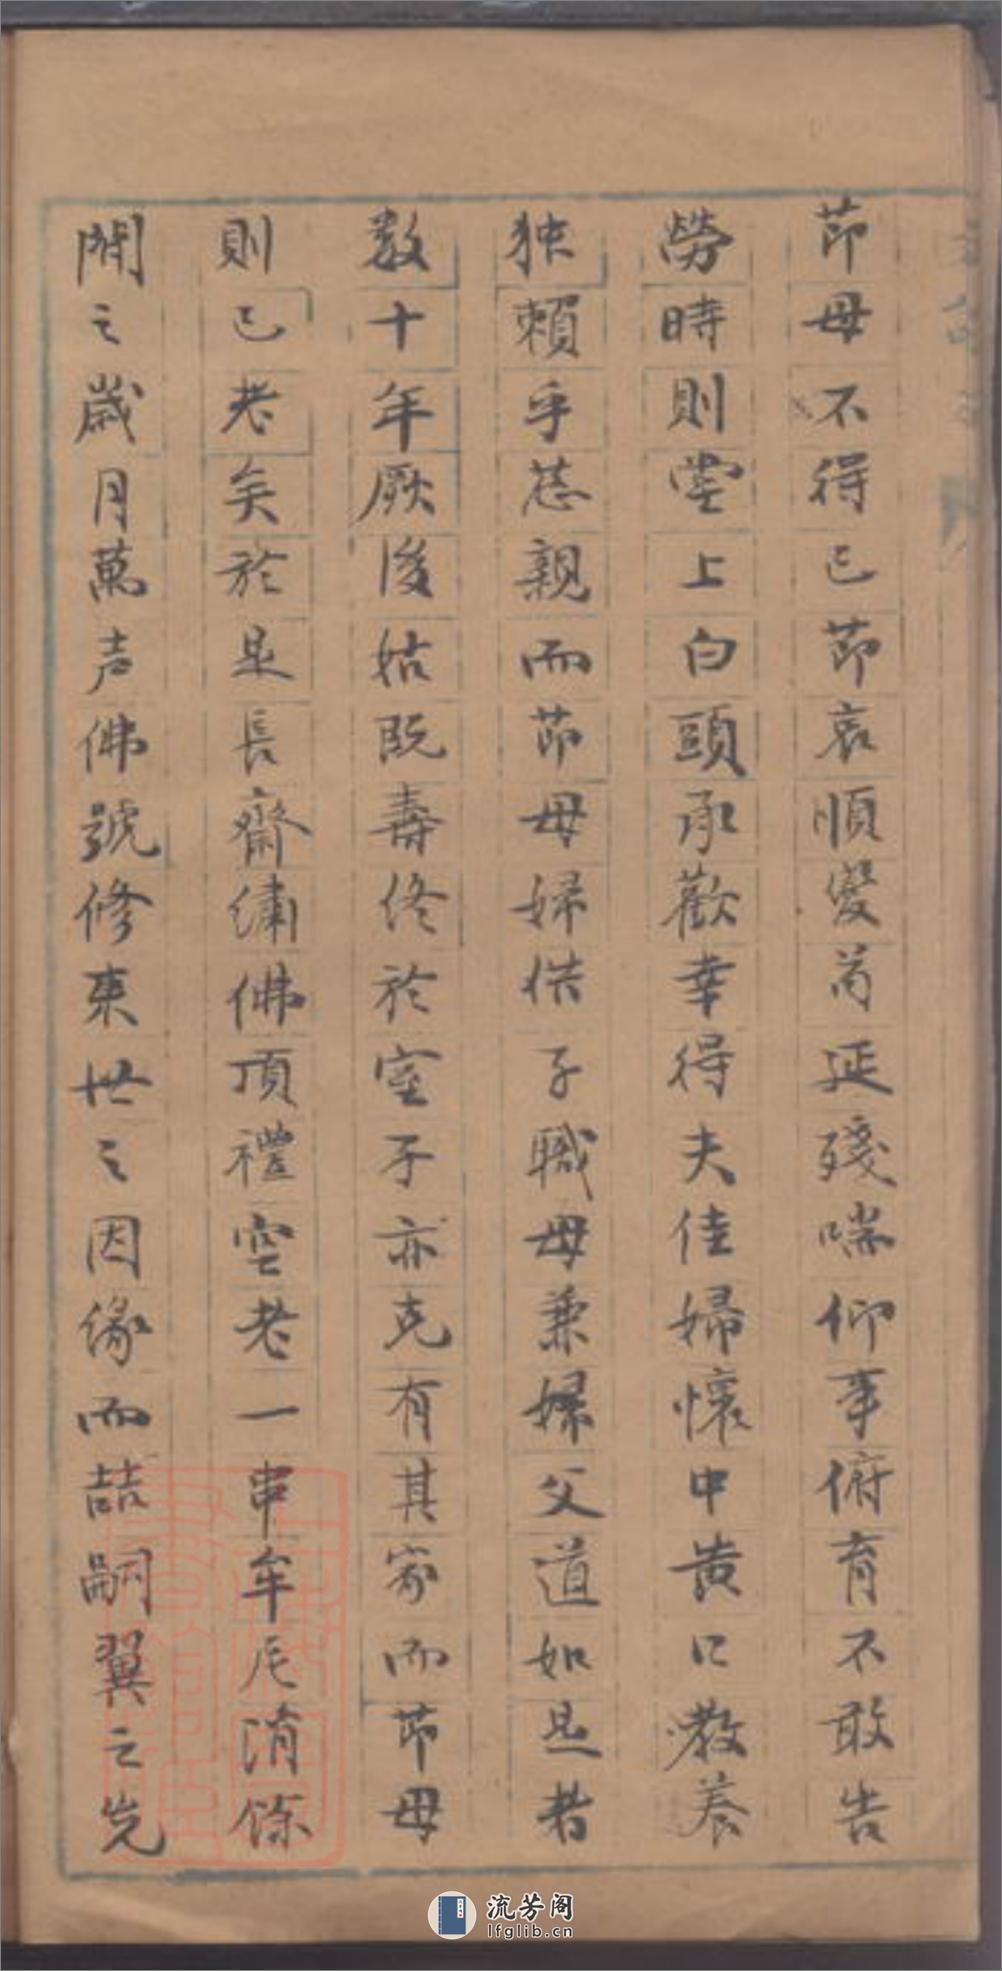 節母不得已節哀順變苟延殘喘仰事俯育不敢告
勞時則堂上白頭承歡幸得夫佳婦懷中黄口教养
独賴乎慈親而節母婦供子職母兼嫜父道如是者
数十年厥後姑既壽终於室子亦克有其家而節母
則已老矣於是長齋绣佛頂禮空老一串牟尼消餘
閒之歲月萬声佛號修来世之因缘而喆嗣翼之先
流芳阁
lfglib.cn